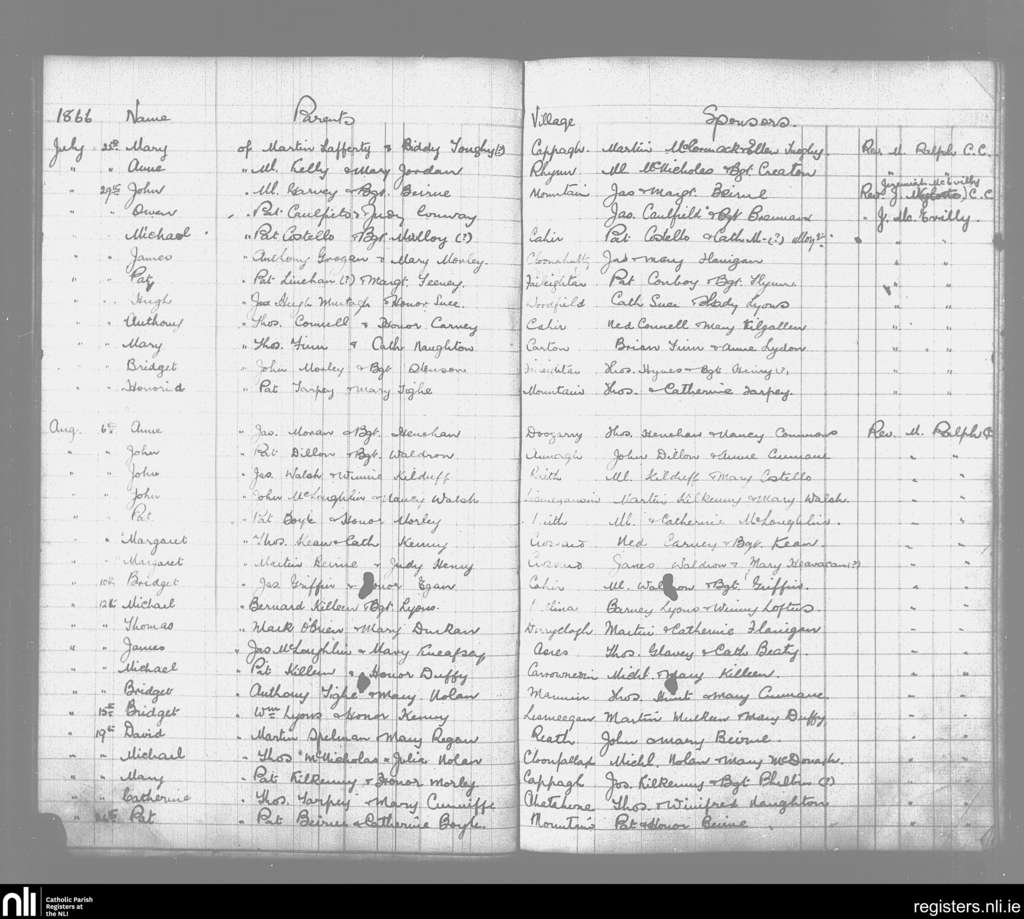 1866 Name Parents Village Sponsors.
July 25th Mary of Martin Lafferty & Biddy Toughy(?) Cappagh Martin McCormack & Ellen Rev M. Ralph C.C.
" " Anne " Ml. Kelly & Mary Jordan Rhynn Ml McNicholas & Bgt Creaton " "
Jeremiah McEvilly
" 29th John " Ml. Garvey & Bgt. Beirne Mountain Jas & Margt. Beirne Rev. J. C.C
" " Owen " Pat Caulfield & Judy Conway Jas. Caulfield & Bgt Brennan " J. McEvilly.
" " Michael " Pat Costello & Bgt. Malloy (?) Cahir Pat Costello & Cath. M-(?) " "
" " James " Anthony Grogan & Mary Morley. Jas & Mary Flanigan " "
" " Paty " Pat Linehan (?) & Margt. Feeney. Pat Conboy & Bgt. Flynn " "
" " Hugh " Hugh Murtagh & Honor Suce. Woodfield Cath Suce & Lyons " "
" " Anthony " Thos. Connell & Honor Carney Cahir Ned Connell & Mary Kilgallen " "
" " Mary " Thos. Finn & Cath Naughton Carton Brian Finn & Anne Lydon " "
" " Bridget " John Morley & Bgt Thos. Hynes & Bgt " "
" " Honorid " Pat Tarpey & Mary Tighe Mountain Thos. & Catherine Tarpey. " "
Aug. 6th Anne " Jas. Moran & Bgt. Henehan Doogarry Thos. Henehan & Nancy Commons Rev. M. Ralph
" " John " Pat Dillon & Bgt. Waldron Annagh John Dillon & Anne Cunnane " "
" " John " Jas. Walsh & Winnie Kilduff Reith Ml. Kilduff & Mary Costello " "
" " John " John McLoughlin & Nancy Walsh Martin Kilkenny & Mary Walsh. " "
" " Pat " Pat Boyle & Honor Morley Ml. & Catherine McLoughlin. " "
" " Margaret " Thos. Kean & Cath Kenny Crossard Ned Carney & Bgt. Kean. " "
" " Margaret " Martin Beirne & Judy Henry Crossard James Waldron & Mary (?) " "
" 10th Bridget " Jas Griffin & Honor Egan Cahir Ml. Waldron & Bgt. Griffin. " "
" 12th Michael " Bernard Killeen & Bgt. Lyons. Barney Lyons & Winny Loftus " "
" " Thomas " Mark O'Brien & Mary Durkan Derryclogh Martin & Catherine Flanigan " "
" " James " Jas McLoughlin & Mary Kneafsey Acres Thos. Glavey & Cath Beaty. " "
" " Michael " Pat Killeen & Honor Duffy Carrowneden Michl. & Mary Killeen. " "
" " Bridget " Anthony Tighe & Mary Nolan Mannin Thos. Hunt & Mary Cunnane " "
" 15th Bridget " Wm Lyons & Honor Kenny Lismeegan Martin Mulkeen & Mary Duffy " "
" 19th David " Martin Spelman & Mary Regan Reath John & Mary Beirne " "
" " Michael " Thos McNicholas & Julia Nolan Cloonfallax Michl. Nolan & Mary McDonagh. " "
" " Mary " Pat Kilkenny & Honor Morley Cappagh Jos. Kilkenny & Bgt Phillin (?) " "
" " Catherine " Thos. Tarpey & Mary Cunniffe Thos. & Winifred Naughton " "
" Pat " Pat Beirne & Catherine Boyle. Mountain Pat & Honor Beirne " "
nli Catholic Parish
Registers at
the NLI
registers.nli.ie